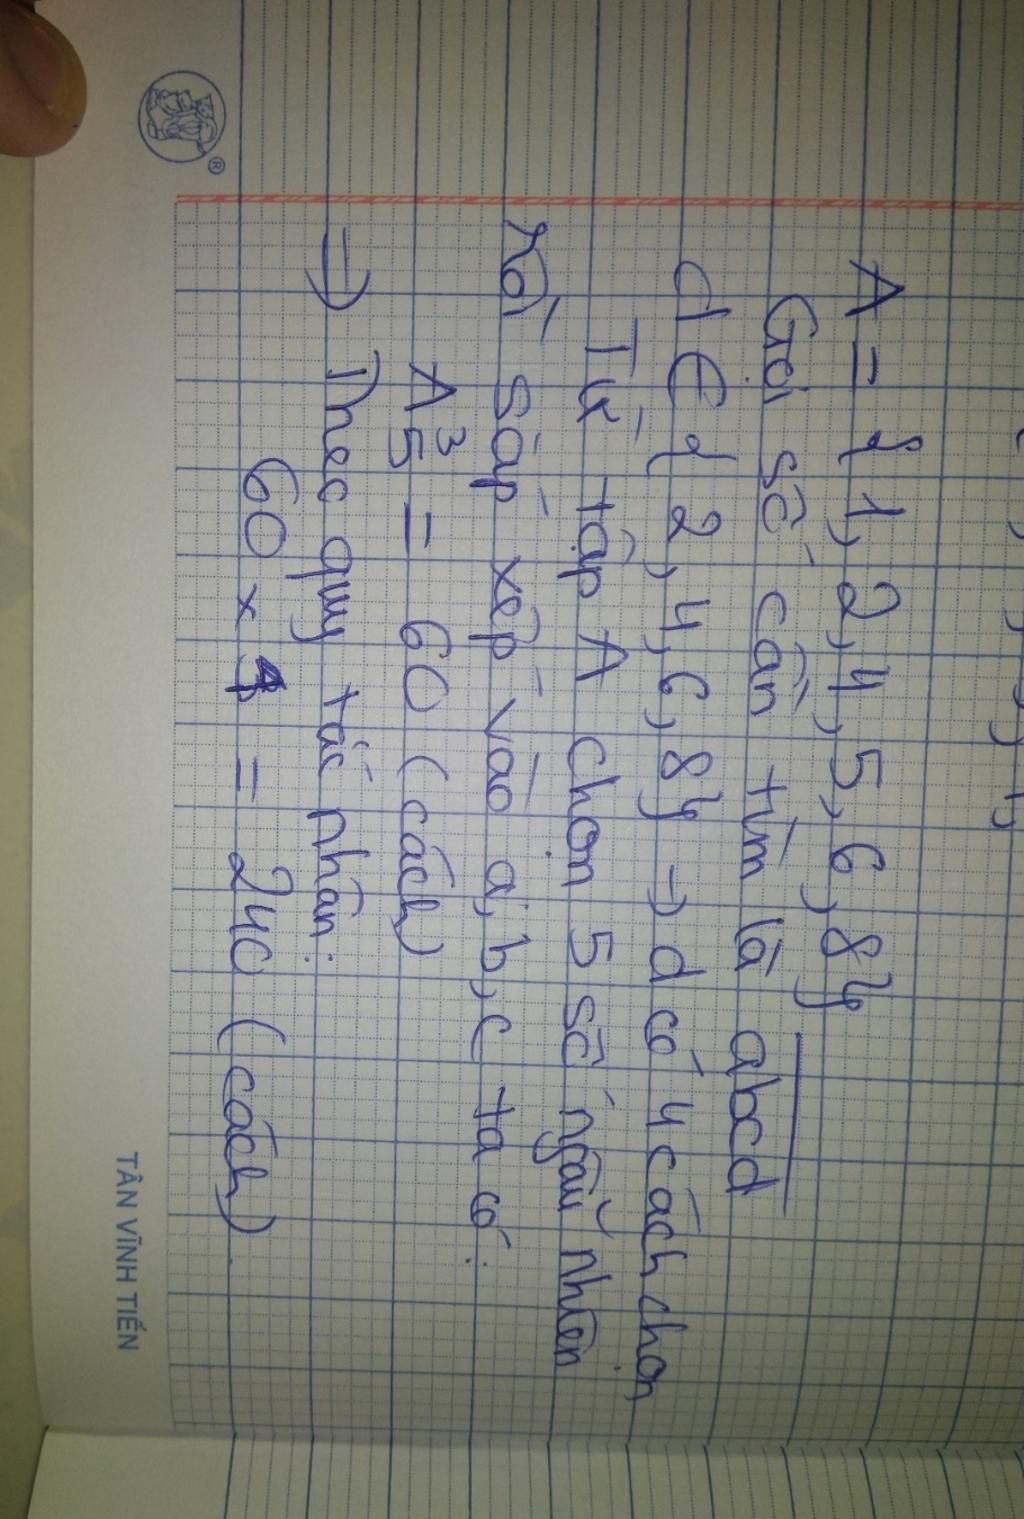 A = { 1, 2, 4, 5, 6, 8}
Gọi số cần tìm là abcd
d ∈ { 2, 4, 6, 8} → d có 4 cách chọn
Từ tập A chọn 5 số ngẫu nhiên
rồi sắp xếp vào a, b, c ta có:
A³₅ = 60 (cách)
→ Theo quy tắc nhân:
60 x 4 = 240 (cách)
TÂN VĨNH TIẾN
®